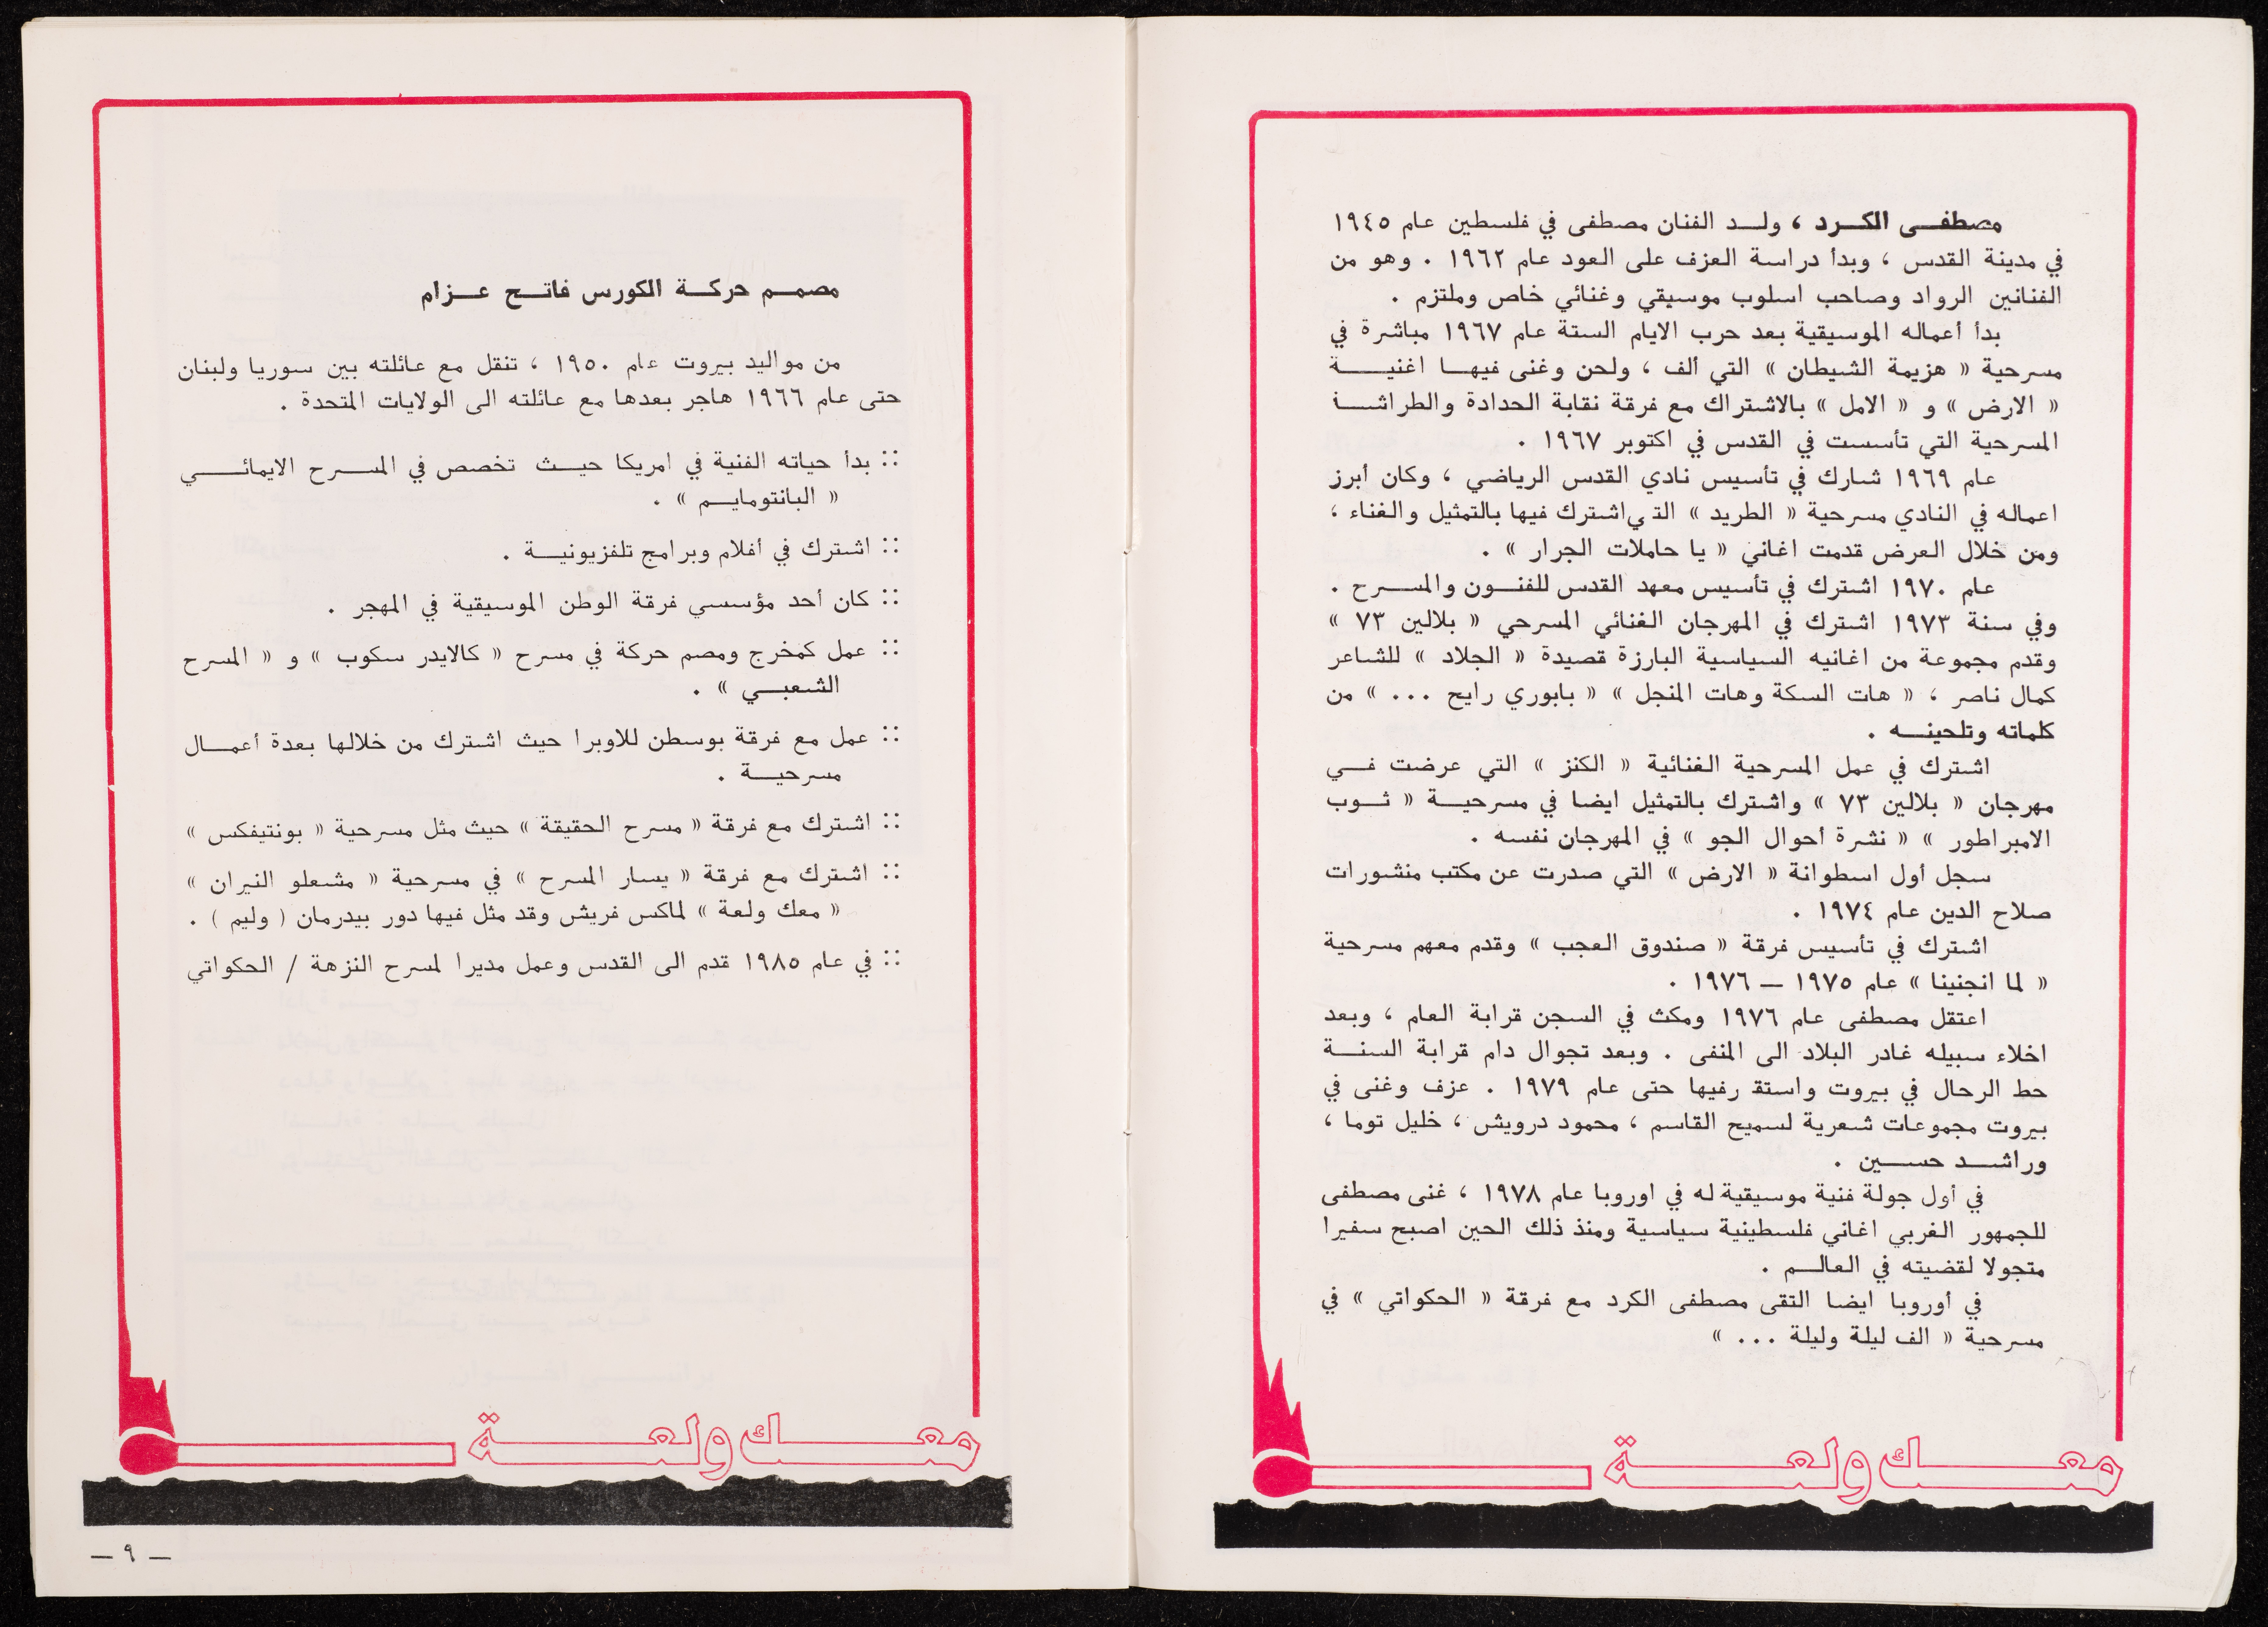 مصطفى الكرد ، ولد الفنان مصطفى في فلسطين عام ١٩٤٥
في مدينة القدس ، وبدأ دراسة العزف على العود عام ١٩٦٢ . وهو من
الفنانين الرواد وصاحب اسلوب موسيقي وغنائي خاص وملتزم .
بدأ أعماله الموسيقية بعد حرب الايام الستة عام ١٩٦٧ مباشرة في
مسرحية « هزيمة الشيطان » التي ألف ، ولحن وغنى فيها اغنية
« الارض » و « الامل » بالاشتراك مع فرقة نقابة الحدادة والطراشة
المسرحية التي تأسست في القدس في اكتوبر ١٩٦٧ .
عام ١٩٦٩ شارك في تأسيس نادي القدس الرياضي ، وكان أبرز
اعماله في النادي مسرحية « الطريد » التي اشترك فيها بالتمثيل والغناء ،
ومن خلال العرض قدمت اغاني « يا حاملات الجرار » .
عام ١٩٧٠ اشترك في تأسيس معهد القدس للفنون والمسرح .
وفي سنة ١٩٧٣ اشترك في المهرجان الغنائي المسرحي « بلالين ٧٣ »
وقدم مجموعة من اغانيه السياسية البارزة قصيدة « الجلاد » للشاعر
كمال ناصر ، « هات السكة وهات المنجل » « بابوري رايح ... » من
كلماته وتلحينه .
اشترك في عمل المسرحية الغنائية « الكنز » التي عرضت في
مهرجان « بلالين ٧٣ » واشترك بالتمثيل ايضا في مسرحية « ثوب
الامبراطور » « نشرة أحوال الجو » في المهرجان نفسه .
سجل أول اسطوانة « الارض » التي صدرت عن مكتب منشورات
صلاح الدين عام ١٩٧٤ .
اشترك في تأسيس فرقة « صندوق العجب » وقدم معهم مسرحية
« لما انجنينا » عام ١٩٧٥ — ١٩٧٦ .
اعتقل مصطفى عام ١٩٧٦ ومكث في السجن قرابة العام ، وبعد
اخلاء سبيله غادر البلاد الى المنفى . وبعد تجوال دام قرابة السنة
حط الرحال في بيروت واستقـ رفيها حتى عام ١٩٧٩ . عزف وغنى في
بيروت مجموعات شعرية لسميح القاسم ، محمود درويش ، خليل توما ،
وراشد حسين .
في أول جولة فنية موسيقية له في اوروبا عام ١٩٧٨ ، غنى مصطفى
للجمهور الغربي اغاني فلسطينية سياسية ومنذ ذلك الحين اصبح سفيرا
متجولا لقضيته في العالم .
في أوروبا ايضا التقى مصطفى الكرد مع فرقة « الحكواتي » في
مسرحية « الف ليلة وليلة ... »
معك ولعة
مصمم حركة الكورس فاتح عزام
من مواليد بيروت عام ١٩٥٠ ، تنقل مع عائلته بين سوريا ولبنان
حتى عام ١٩٦٦ هاجر بعدها مع عائلته الى الولايات المتحدة .
:: بدأ حياته الفنية في امريكا حيث تخصص في المسرح الايمائي
« البانتومايم » .
:: اشترك في أفلام وبرامج تلفزيونية .
:: كان أحد مؤسسي فرقة الوطن الموسيقية في المهجر .
:: عمل كمخرج ومصم حركة في مسرح « كالايدر سكوب » و « المسرح
الشعبي » .
:: عمل مع فرقة بوسطن للاوبرا حيث اشترك من خلالها بعدة أعمال
مسرحية .
:: اشترك مع فرقة « مسرح الحقيقة » حيث مثل مسرحية « بونتيفكس »
:: اشترك مع فرقة « يسار المسرح » في مسرحية « مشعلو النيران »
« معك ولعة » لماكس فريش وقد مثل فيها دور بيدرمان ( وليم ) .
:: في عام ١٩٨٥ قدم الى القدس وعمل مديرا لمسرح النزهة / الحكواتي
معك ولعة
— ٩ —